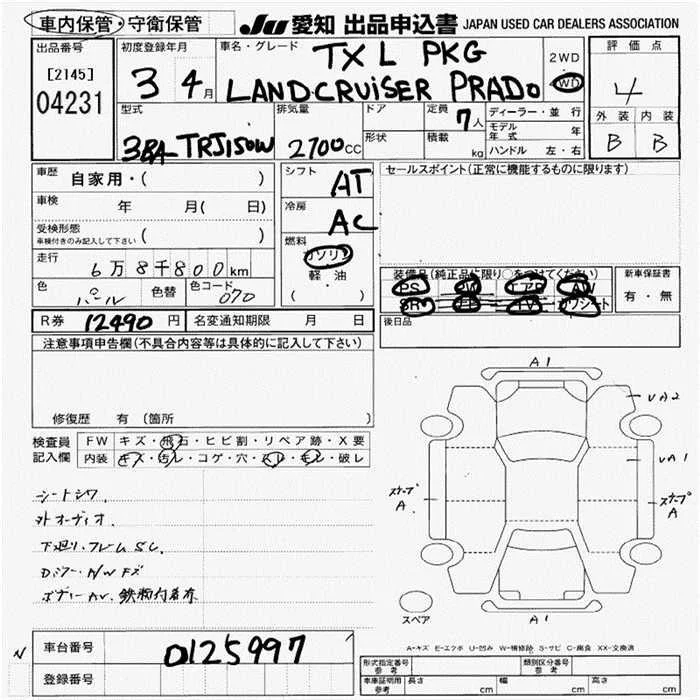 車内保管・守衛保管 JU 愛知 出品申込書 JAPAN USED CAR DEALERS ASSOCIATION
出品番号 初度登録年月 車名・グレード 評価点
[2145] 3 4月 TX L PKG 2WD
04231 LANDCRUISER PRADO WD 4
型式 排気量 ドア 定員 7人 ディーラー・並行 外装 内装
3BA-TRJ150W 2700cc 形状 積載 kg モデル年式 年 B B
ハンドル 左・右
車歴 自家用・( ) シフト AT セールスポイント(正常に機能するものに限ります)
車検 年 月( 日) 冷房 AC
受検形態 ( )
車検付きのみ記入して下さい
燃料 ガソリン
走行 6万8千800km 軽・油 装備品(純正品に限り○をつけてください) 新車保証書
色 パール 色替 色コード 070 ( ・ ) PS PW エアB AW 有・無
SR TV カワシート
R券 12490円 名変通知期限 月 日 後日品
注意事項申告欄(不具合内容等は具体的に記入して下さい)
修復歴 有 (箇所
検査員 FW キズ・飛石・ヒビ割・リペア跡・X要
記入欄 内装 キズ・汚レ・コゲ・穴・スレ・モレ・破レ
シートシワ.
外オーディオ
下廻リ・フレームSC.
Dミラー・A/W Fズ
ボディーAV. 鉄粉付着有
A1
UA2
UA1
スナップ A
スナップ A
スペア
A1
A-キズ E-エクボ U-凹み W-補修跡 S-サビ C-腐食 XX-交換済
N 車台番号 0125997
登録番号
形式指定番号 参考 類別区分番号 参考
車庫証明用 参考 長さ cm 幅 cm 高さ cm